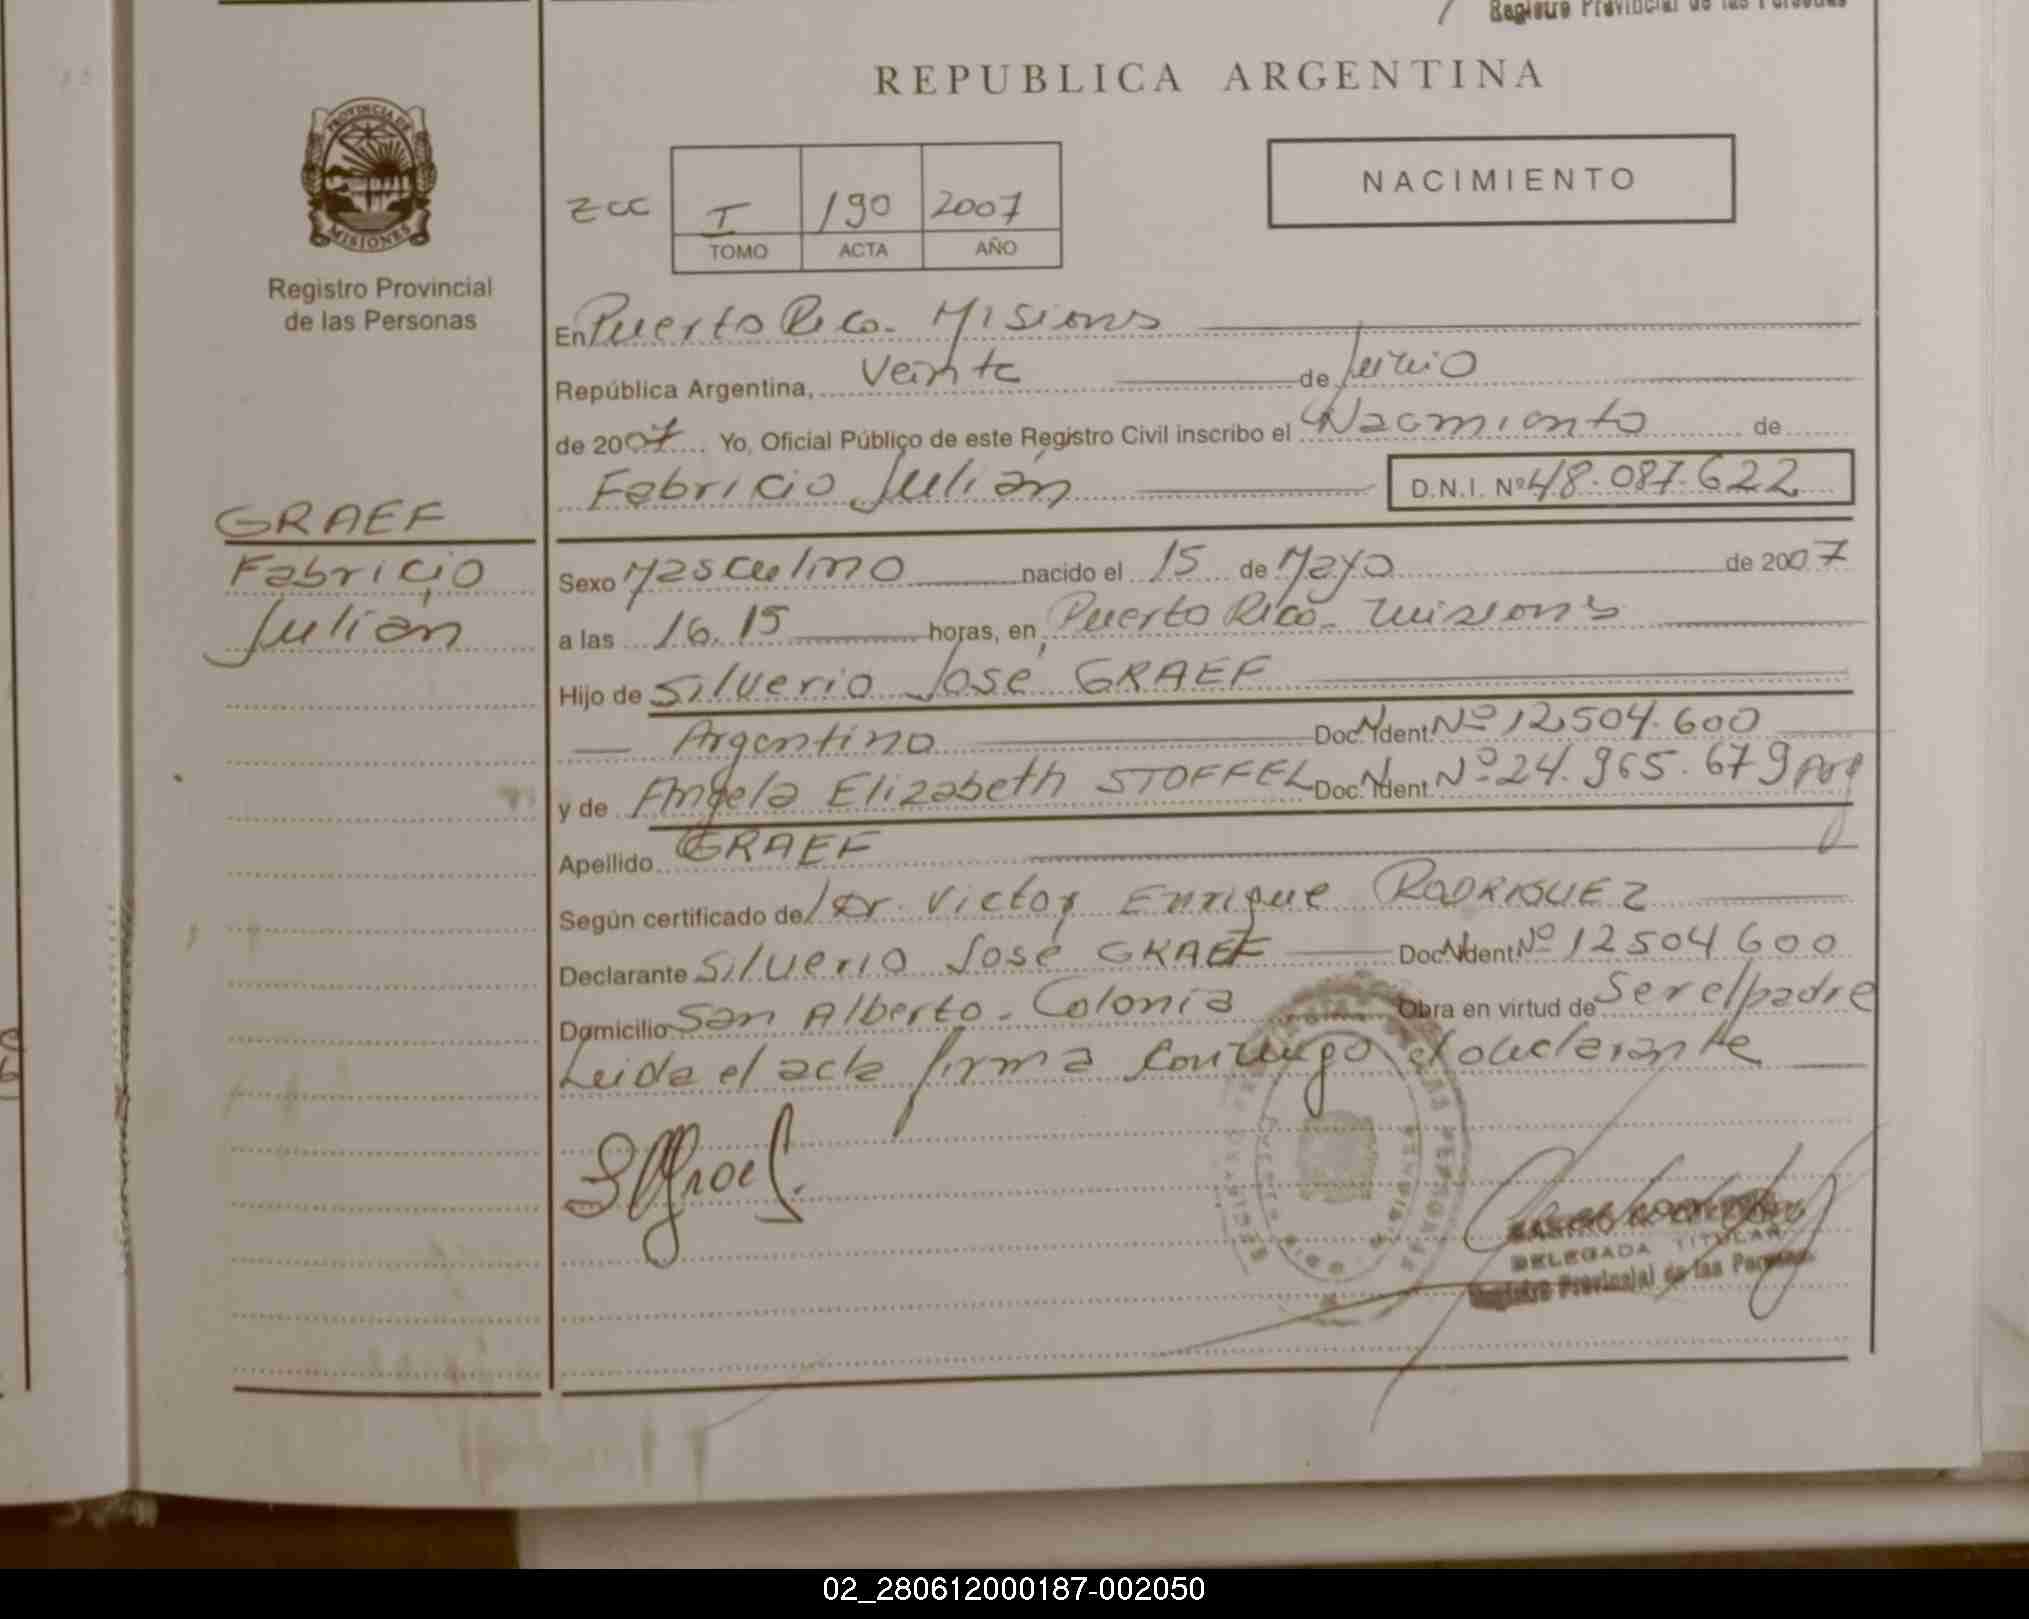 Registro Provincial de las Personas
REPUBLICA ARGENTINA
PROVINCIA DE
MISIONES
Registro Provincial
de las Personas
NACIMIENTO
zcc I 190 2007
TOMO ACTA AÑO
En Puerto Rico. Misions
República Argentina, Veinte de Junio
de 2007 Yo, Oficial Público de este Registro Civil inscribo el Nacimiento de
Fabricio Julián D.N.I. Nº 48.087.622
GRAEF
Fabricio
Julián
Sexo Masculino nacido el 15 de Mayo de 2007
a las 16.15 horas, en Puerto Rico. Misions
Hijo de Silverio José GRAEF
Argentino Doc. Ident. Nº 12.504.600
y de Angela Elizabeth STOFFEL Doc. Ident. Nº 24.965.679 Arg
Apellido GRAEF
Según certificado del Dr. Victor Enrique RODRIGUEZ
Declarante Silverio José GRAEF Doc. Ident. Nº 12504600
Domicilio San Alberto. Colonia Obra en virtud de Ser el padre
Leida el acta firma conmigo el declarante
DELEGADA TITULAR
Registro Provincial de las Personas
02_280612000187-002050